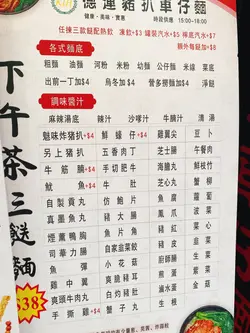 德運豬扒車仔麵
健康・美味・實惠
時段供應 15:00-18:00
任揀三款餸配熱飲 凍飲+$3 罐裝汽水+$5 樽底汽水+$7
額外每餸加+$8
各式麵底
粗麵 油麵 河粉 米粉 幼麵 公仔麵 米線 菜底
出前一丁加$4 烏冬加 $4 營多撈麵 淨餸
調味醬汁
麻辣湯底 辣汁 沙嗲汁 牛腩汁 清湯
魷味炸豬扒+$4 鮮蠔仔+$4 雞翼尖 豆卜
另上豬扒 五香肉丁 芝士腸 午餐肉
牛筋腩+$4 手切肥牛 海膽丸 鮮枝竹
魷魚+$4 牛肚 芝心丸 蟹柳
自製貢丸 仿鮑片 魚腐 蘿蔔
真墨魚丸 豬大腸 鳳爪 菠菜
煙薰鴨胸 魚蛋 菜心
司華力腸 自家韭菜餃 豬皮 冬菇
魚角 小棠菜 廚師腸 生菜
雞中翼 爽脆豬耳 煎蛋 紫菜
爽頭牛肉丸 白灼豬肚 滷水蛋 金菇
手撕雞+$4 蟹子丸 生根
下午茶三餸麵
$38